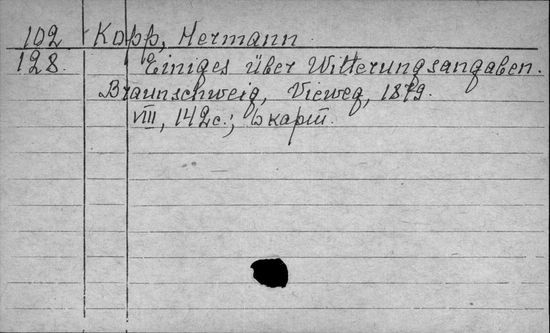 102 Kopp, Hermann
128. Einiges über Witterungsangaben.
Braunschweig, Vieweg, 1879.
VIII, 142c.;